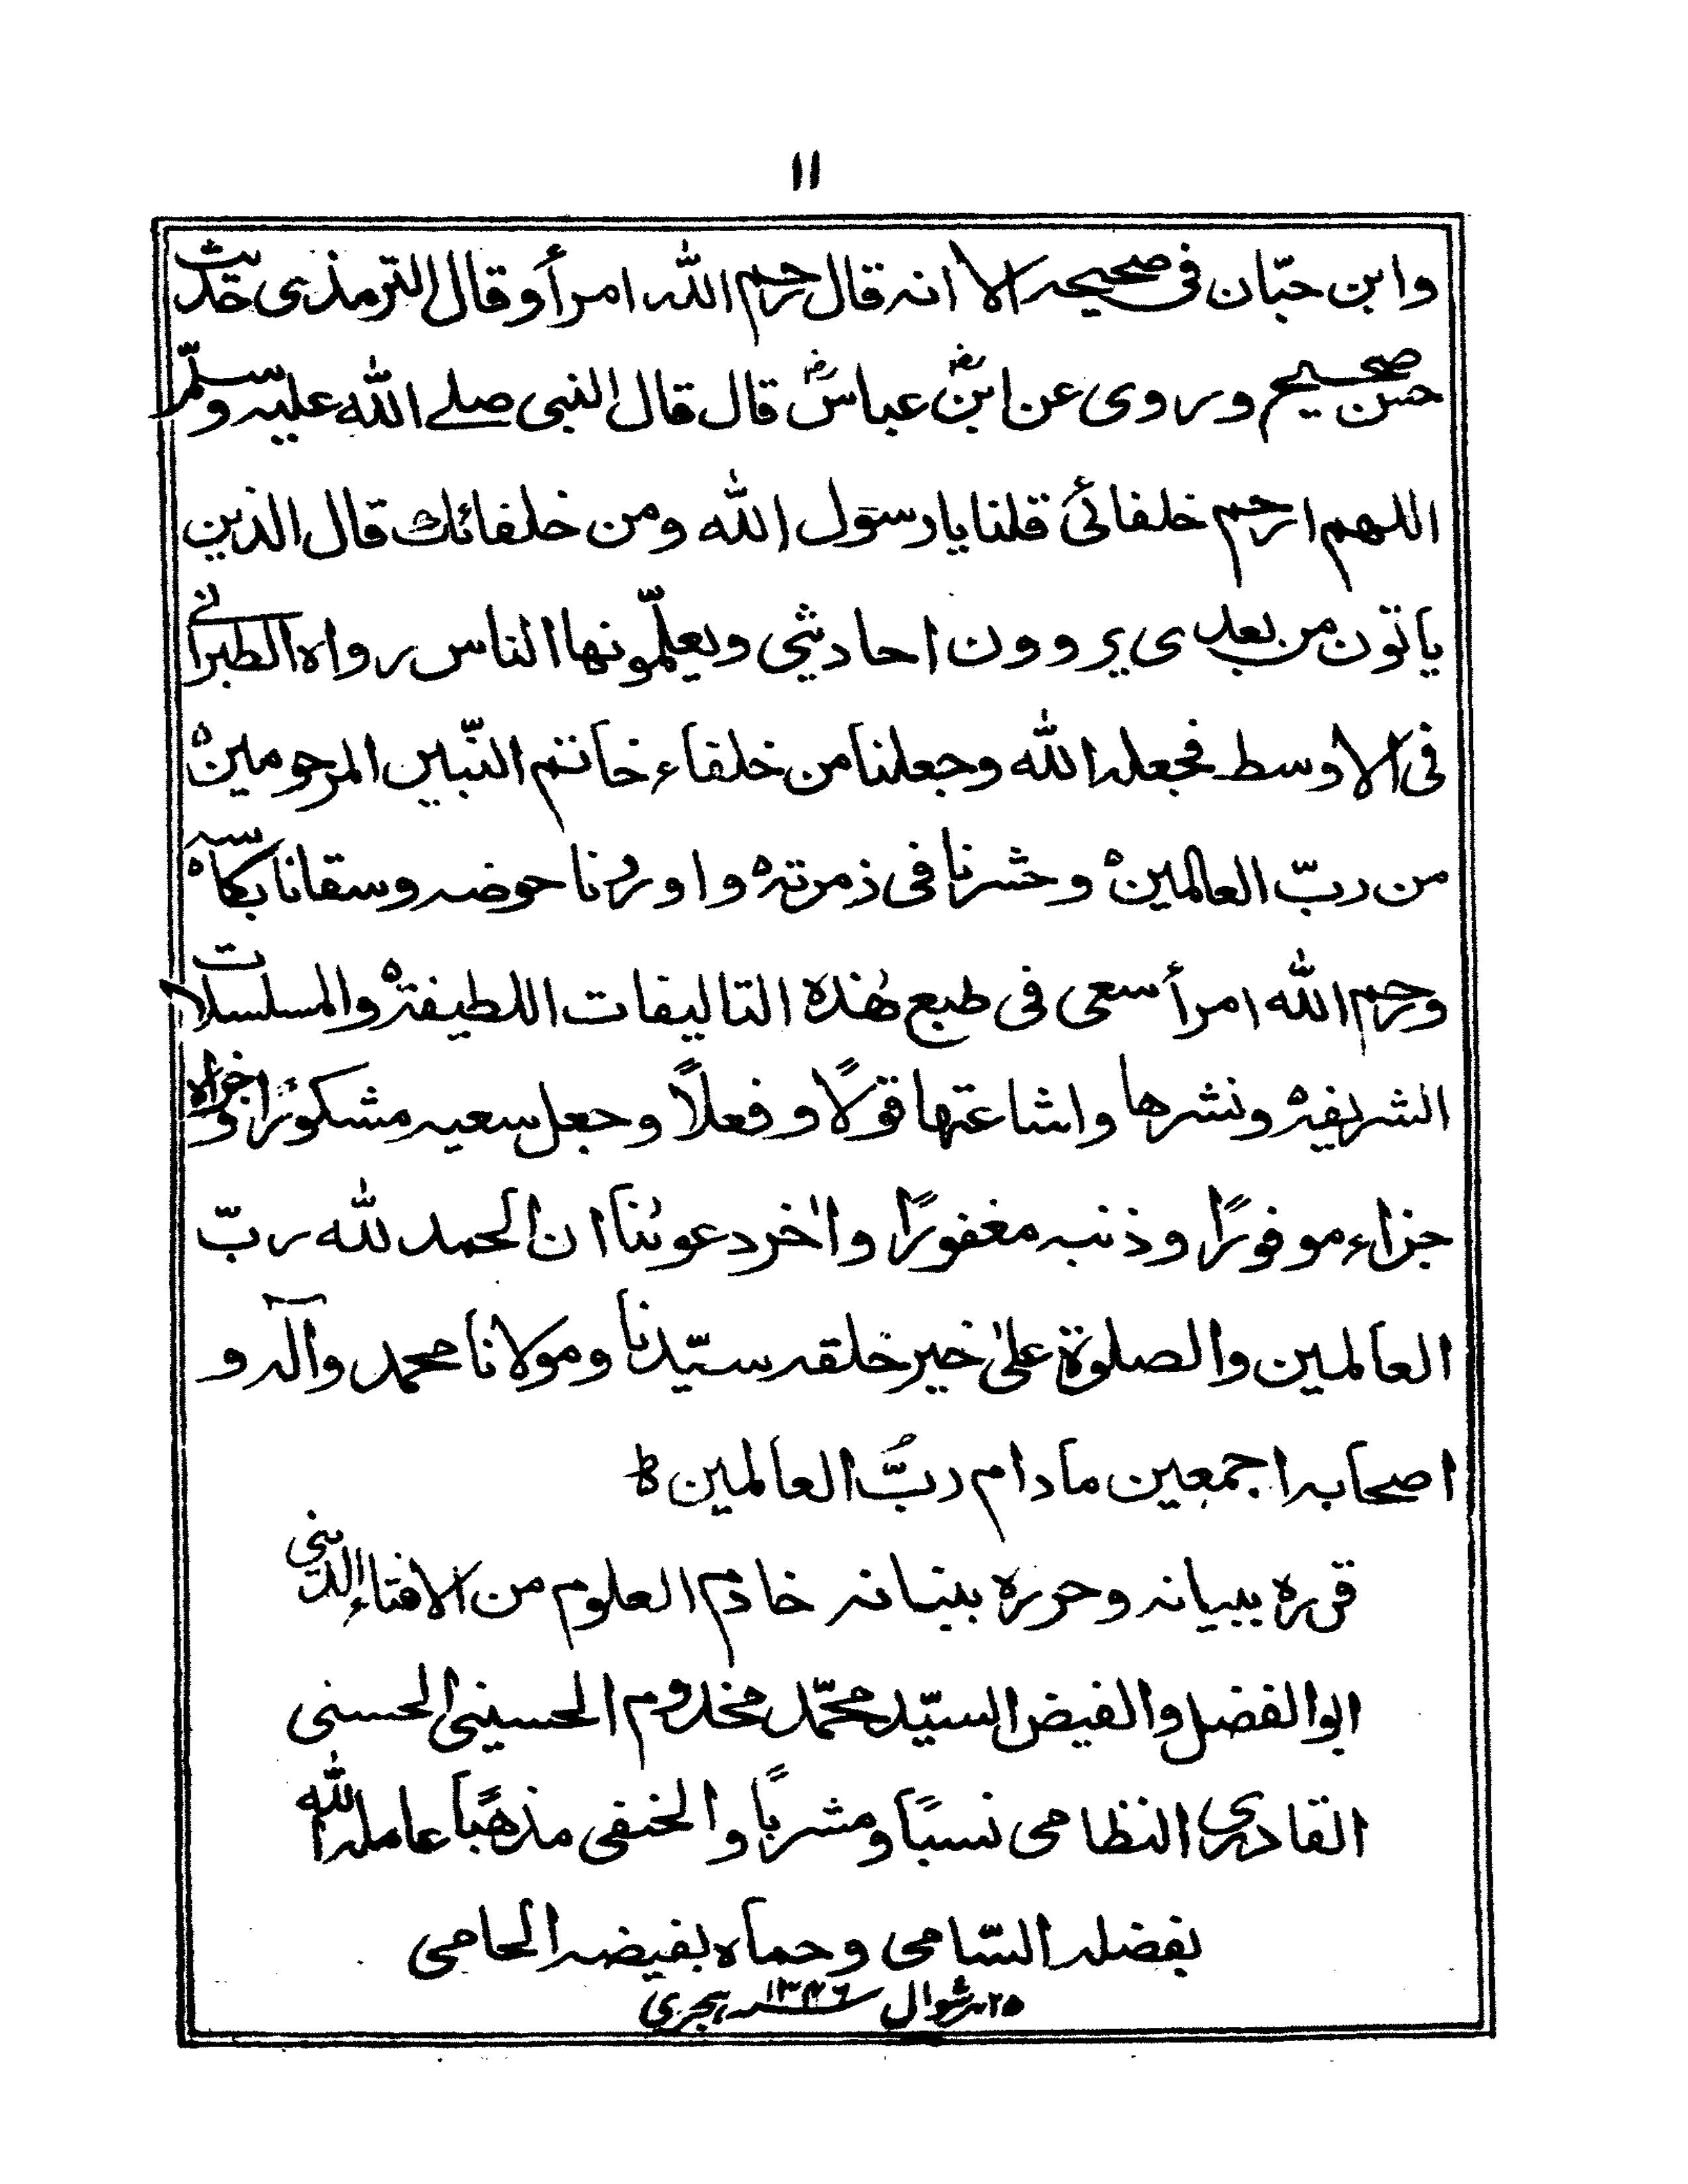 ۱۱
وابن حبّان فی صحیحہ الا انہ قال رحم اللہ امرأ وقال الترمذی حدیث
حسن صحیح وروی عن ابن عباسؓ قال قال النبی صلے اللہ علیہ وسلّم
اللہم ارحم خلفائی قلنا یا رسول اللہ ومن خلفائک قال الذین
یاتون من بعدی یروون احادیثی ویعلّمونہا الناس رواہ الطبرانے
فی الاوسط فجعلہ اللہ وجعلنا من خلفاء خاتم النّبیین المرحومینہ
من ربّ العالمینہ وحشرنا فی زمرتہٖ واوردنا حوضہ وسقانا بکاسہٖ
ورحم اللہ امرأ سعی فی طبع ھٰذہ التالیفات اللطیفۃ والمسلسلات
الشریفۃ ونشرھا واشاعتہا قولًا وفعلًا وجعل سعیہ مشکورًا وجزاہ
جزاء موفورًا وذنبہ مغفورًا واٰخر دعوٰنا ان الحمد للہ ربّ
العالمین والصلوۃ علیٰ خیر خلقہ سیّدنا ومولانا محمد وآلہ و
اصحابہ اجمعین مادام ربُّ العالمین ط
قررہ ببیانہ وحررہ ببنانہ خادم العلوم من الافتاء الدینی
ابو الفضل والفیض السیّد محمّد مخدوم الحسینی الحسنی
القادری النظامی نسبًا ومشربًا والحنفی مذھبًا عاملہ اللہ
بفضلہ السّامی وحماہ بفیضہ الحامی
۲۵ر شوال ۱۳۴۶ سنہ ہجری